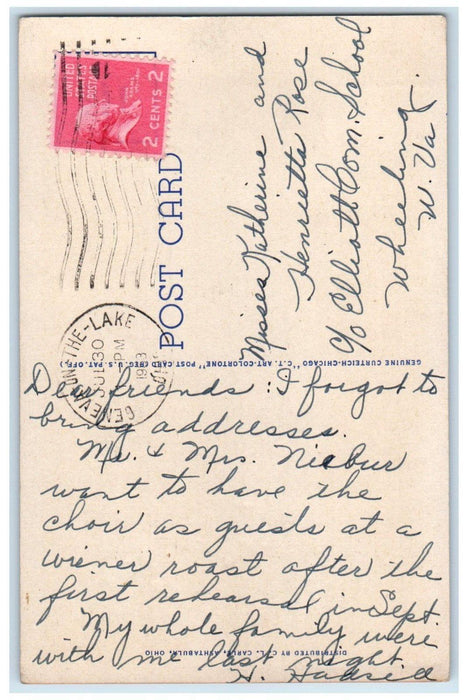 UNITED
STATES
POSTAGE
2 CENTS 2
GENEVA-ON-THE-LAKE
JUL 30
PM
POST CARD
GENUINE CURTEICH-CHICAGO "C.T. ART-COLORTONE" POST CARD (REG. U.S. PAT. OFF.)
Misses Katherine and
Henrietta Rose
c/o Elliott Com School
Wheeling,
W. Va.
Dear friends: I forgot to
bring addresses.
Mr. & Mrs. Niebur
want to have the
choir as guests at a
wiener roast after the
first rehearsal in Sept.
My whole family were
with me last night.
H.
DISTRIBUTED BY C. L. CARLE, ASHTABULA, OHIO